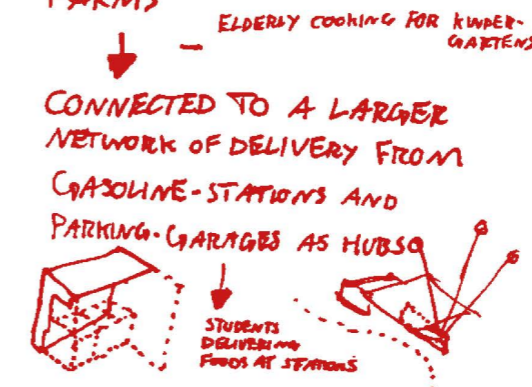 FARMS
ELDERLY COOKING FOR KINDER-
GARTENS
CONNECTED TO A LARGER
NETWORK OF DELIVERY FROM
GASOLINE-STATIONS AND
PARKING-GARAGES AS HUBS
STUDENTS
DELIVERING
FOODS AT STATIONS